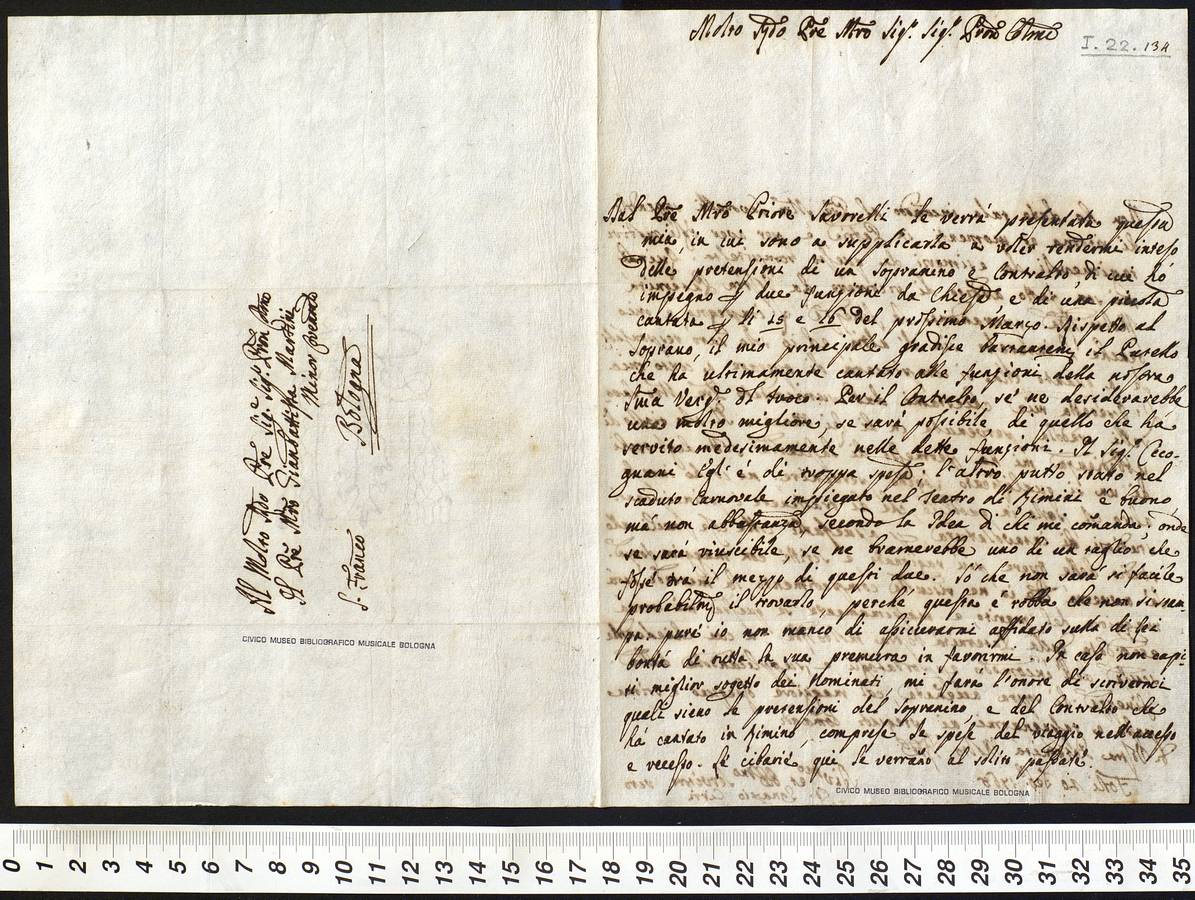 Al Molto Rdo Pre Sig.r Sig.r Pron Pmo
Il Pre Mro Gianbattista Martini
Minor Conventle
Bologna
S. Franco
CIVICO MUSEO BIBLIOGRAFICO MUSICALE BOLOGNA
Molto Rdo Pre Mro Sig.r Sig.r Pron Colmo
I. 22. 134
Dal Pre Mro Priore Savorelli le verrà presentata questa
mia, in cui sono a supplicarla a voler rendermi inteso
delle pretensioni di un Sopranino e Contralto, di cui hò
impegno p due funzioni da Chiesa, e di una piccola
cantata p li 25 e 26 del prossimo Marzo. Rispetto al
Soprano, il mio principale gradisce il Putello
che ha ultimamente cantato alle funzioni della nostra
Sma Verg.e del fuoco. Per il Contralto, se ne desiderarebbe
uno molto migliore, se sarà possibile, di quello che ha
servito medesimamente nelle dette funzioni. Il Sig.r Cico-
gnani Egl' é di troppa spesa; l'altro putto stato nel
scaduto Carnovale impiegato nel Teatro di Rimini è buono
mà non abbastanza, secondo la Idea di chi mi comanda, onde
se sarà riuscibile, se ne bramerebbe uno di un taglio, che
fosse trà il mezzo di questi due. Sò che non sarà sì facile
probabilmte il trovarlo, perché questa é robba che non si stam-
pa, pure io non manco di assicurarmi affidato sulla di Lei
bontà di tutta la sua premura in favorirmi. In caso non capi-
ti miglior sogetto dei Nominati, mi farà l'onore di scrivermi
quali sieno le pretensioni del Sopranino, e del Contralto che
hà cantato in Rimino, comprese le spese del viaggio nell'accesso
e recesso. Le cibarie qui le verranno al solito passate.
CIVICO MUSEO BIBLIOGRAFICO MUSICALE BOLOGNA
0 1 2 3 4 5 6 7 8 9 10 11 12 13 14 15 16 17 18 19 20 21 22 23 24 25 26 27 28 29 30 31 32 33 34 35